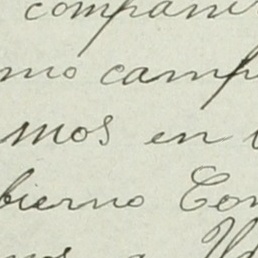 compañ
mo camp
mos en
bierno Con